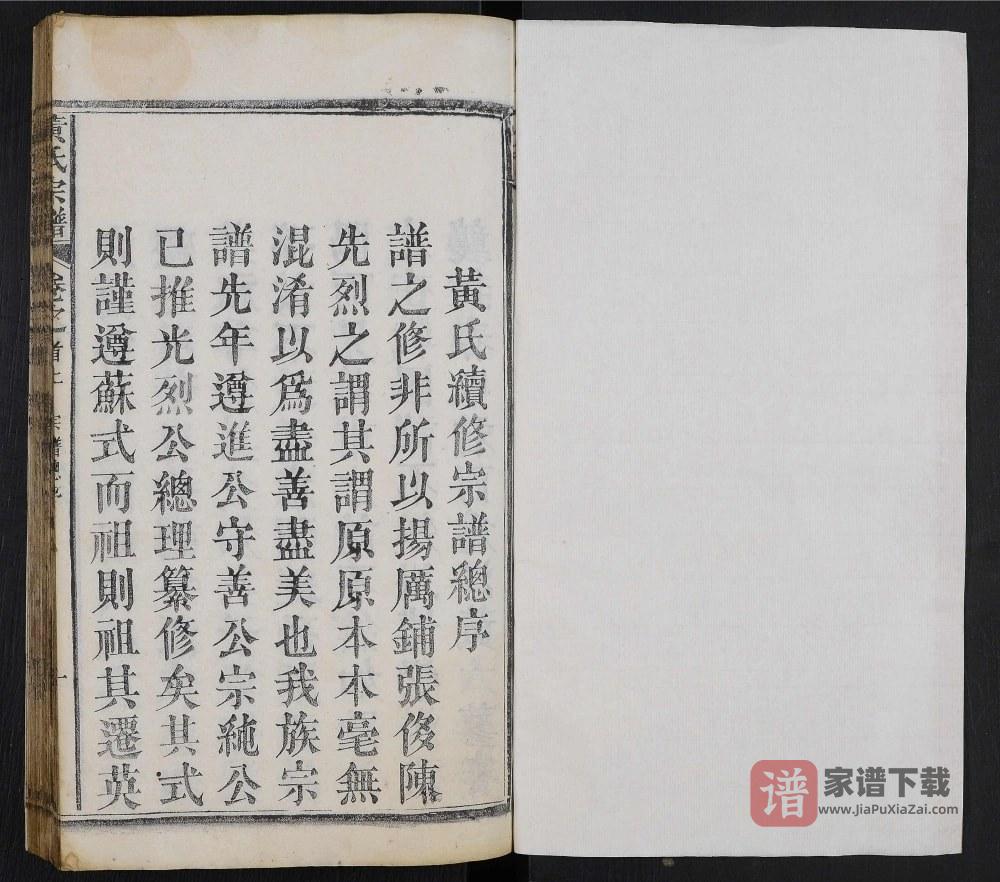 黃氏續修宗譜總序
譜之修非所以揚厲鋪張侈陳
先烈之謂其謂原原本本毫無
混淆以爲盡善盡美也我族宗
譜先年遵進公守善公宗純公
已推光烈公總理纂修矣其式
則謹遵蘇式而祖則祖其遷英
黃氏宗譜
卷之首上
宗譜總序
一
谱
家谱下载
www.JiaPuXiaZai.com